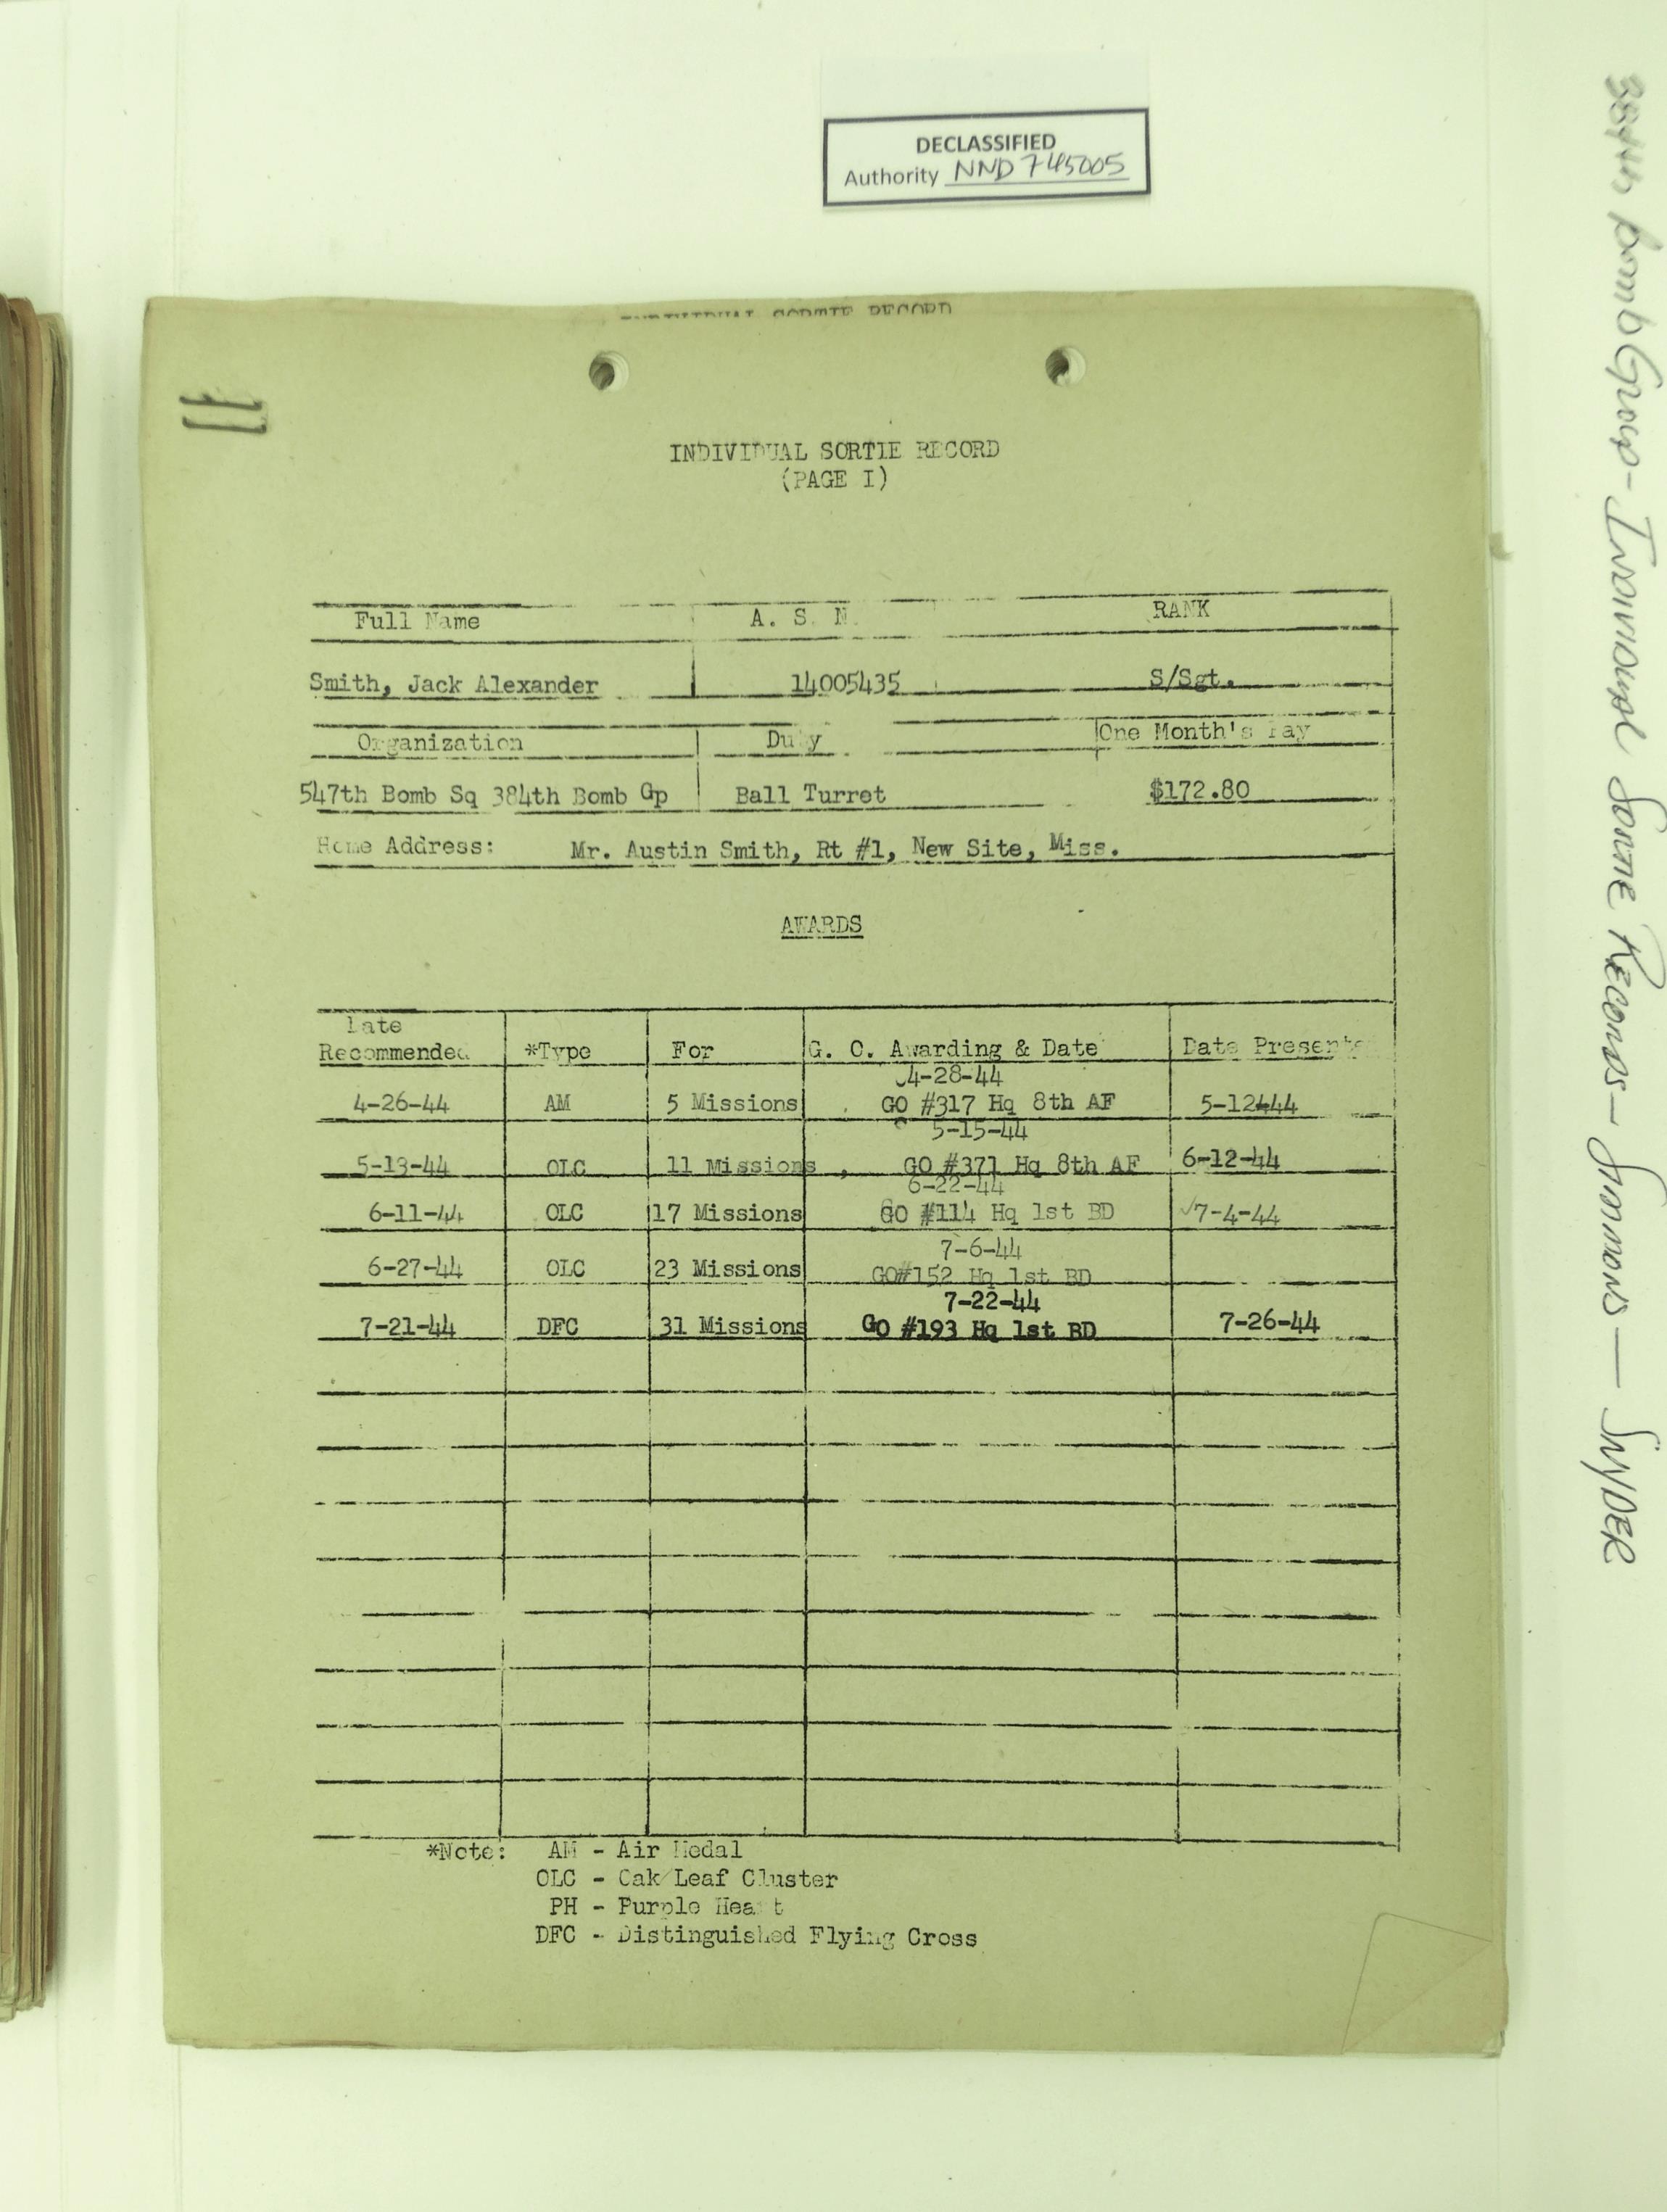 DECLASSIFIED
Authority NND 745005
INDIVIDUAL SORTIE RECORD
INDIVIDUAL SORTIE RECORD
(PAGE I)
Full Name A. S. N. RANK
Smith, Jack Alexander 14005435 S/Sgt.
Organization Duty One Month's Pay
547th Bomb Sq 384th Bomb Gp Ball Turret $172.80
Home Address: Mr. Austin Smith, Rt #1, New Site, Miss.
AWARDS
Date
Recommended *Type For G. O. Awarding & Date Date Presented
4-28-44
4-26-44 AM 5 Missions GO #317 Hq 8th AF 5-12444
5-15-44
5-13-44 OLC 11 Missions, GO #371 Hq 8th AF 6-12-44
6-22-44
6-11-44 OLC 17 Missions GO #114 Hq 1st BD 7-4-44
7-6-44
6-27-44 OLC 23 Missions GO#152 Hq 1st BD
7-22-44
7-21-44 DFC 31 Missions GO #193 Hq 1st BD 7-26-44
*Note: AM - Air Medal
OLC - Oak Leaf Cluster
PH - Purple Heart
DFC - Distinguished Flying Cross
384th Bomb Group - Individual Sortie Records - Simmons - Snyder